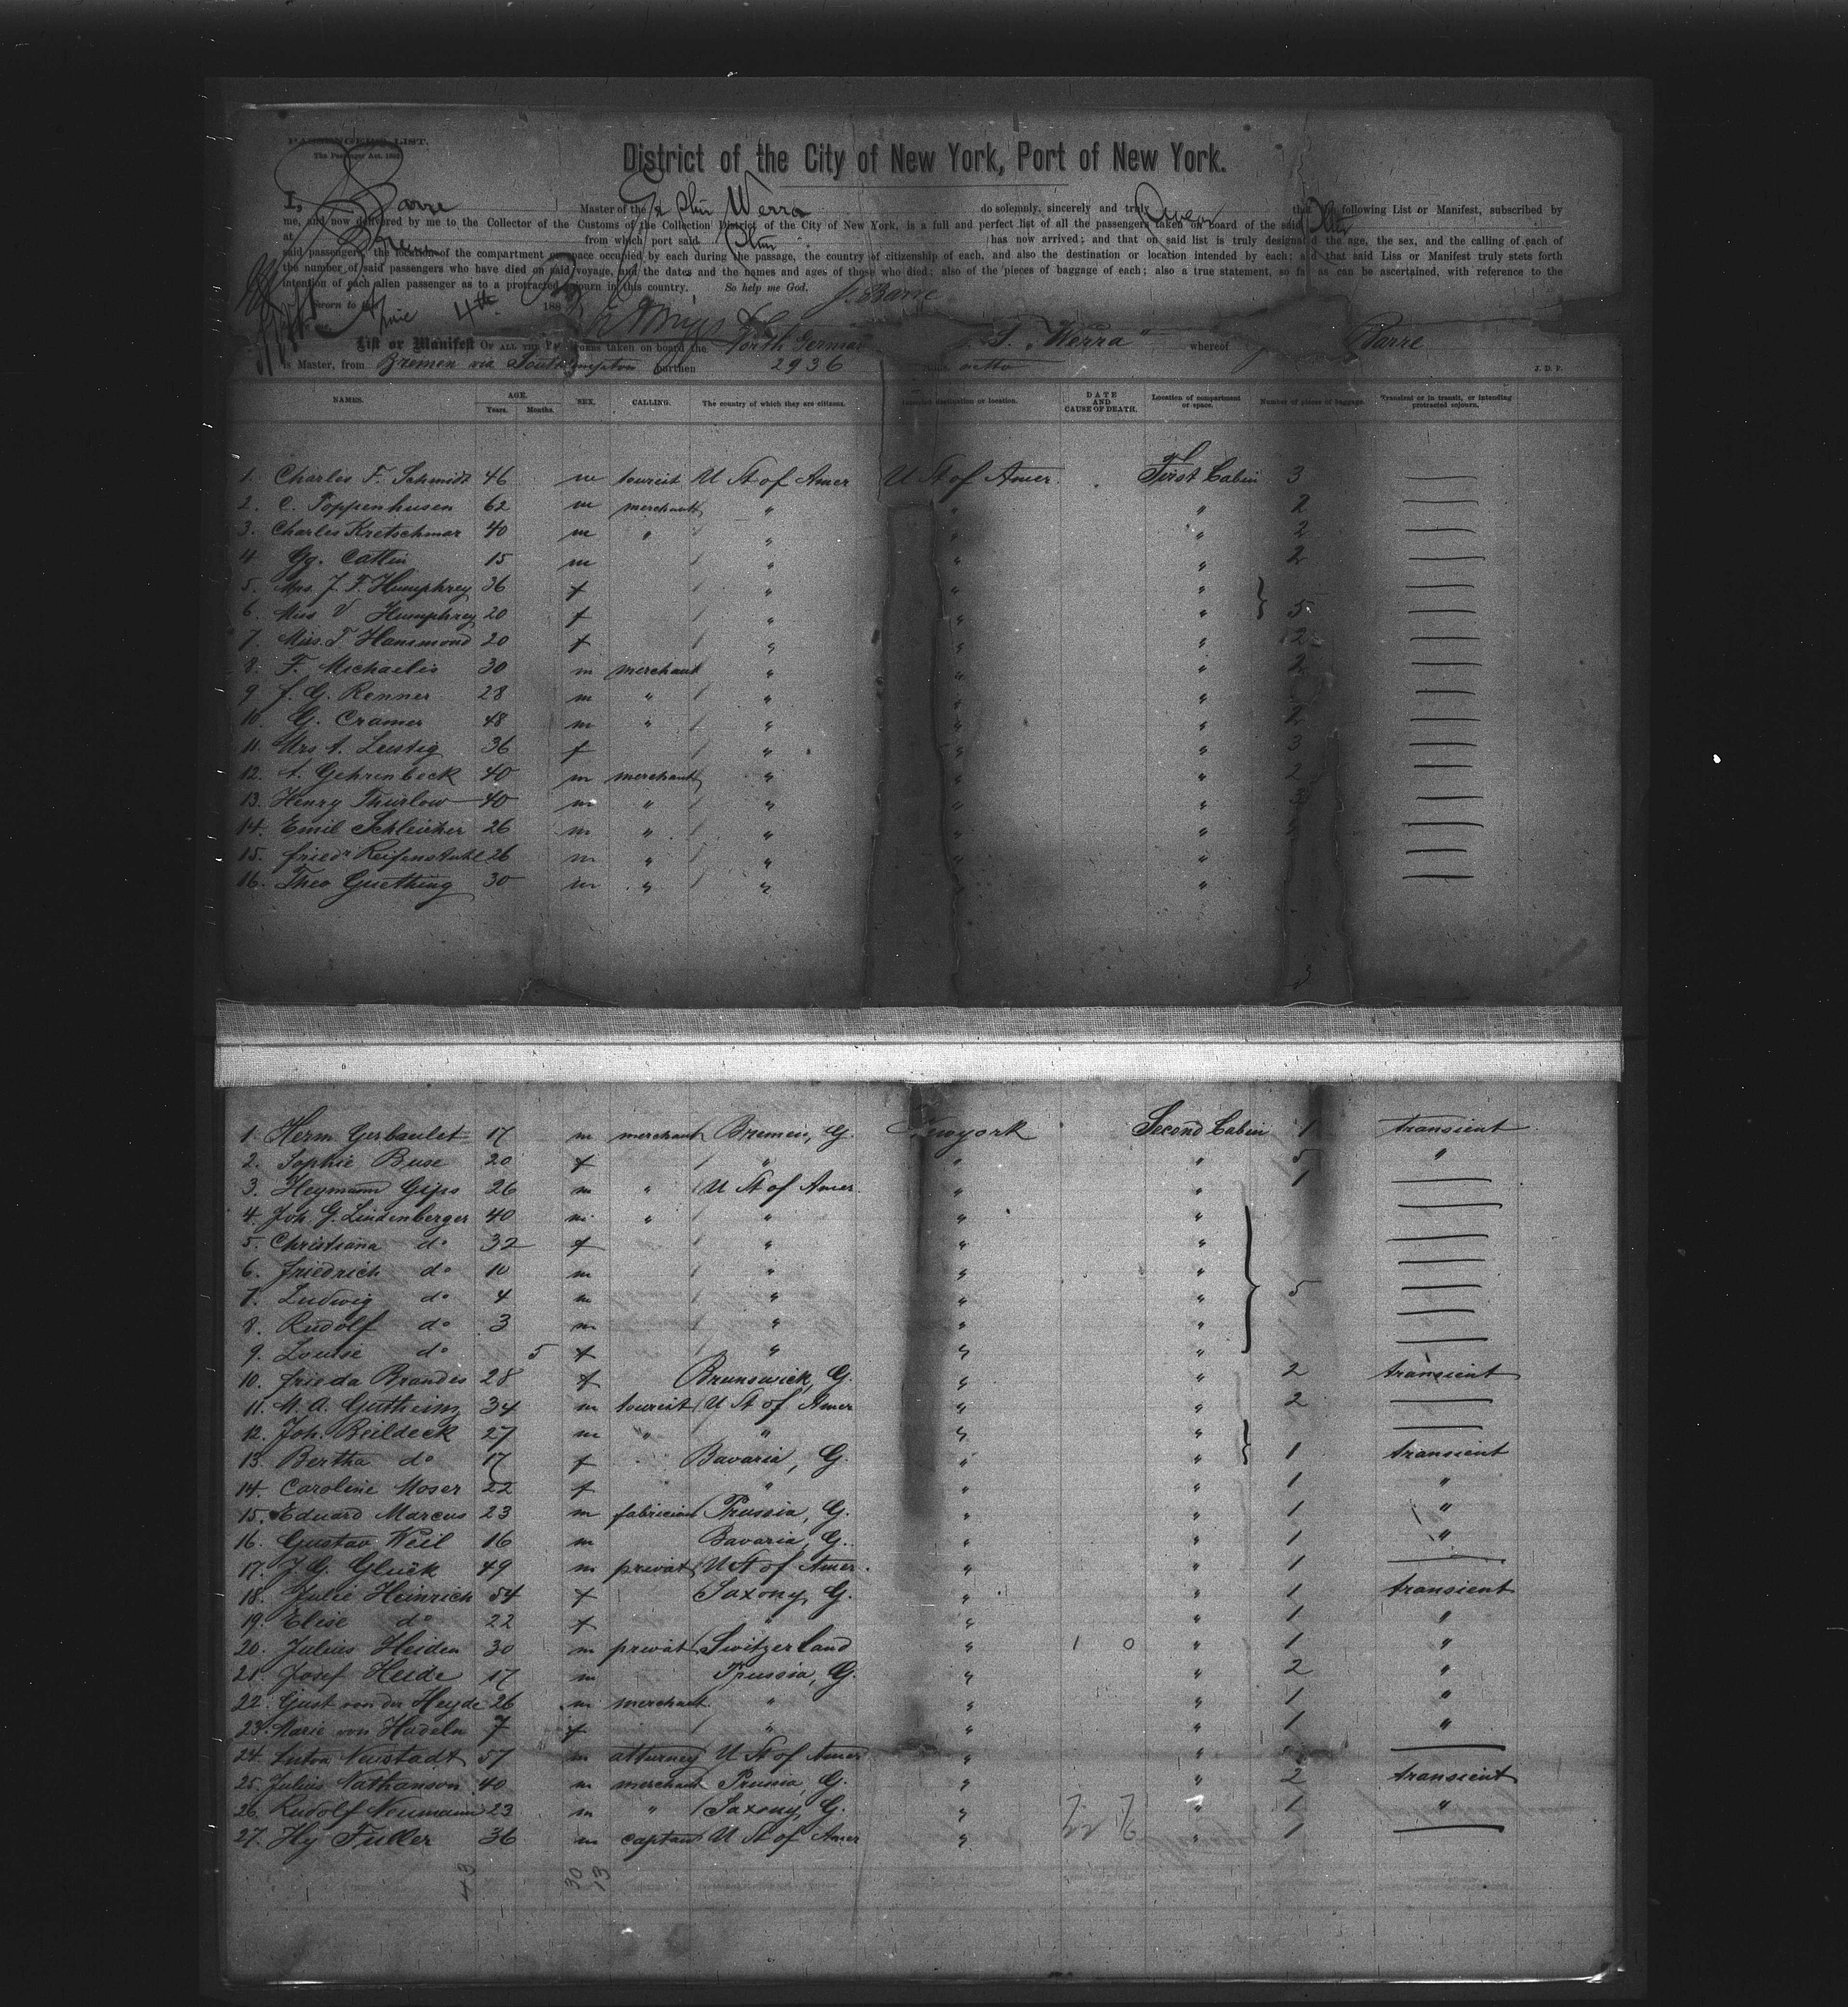 PASSENGERS LIST.
The Passenger Act, 188
District of the City of New York, Port of New York.
I, Barre Master of the Werra do solemnly, sincerely and truly swear that the following List or Manifest, subscribed by
me, and now delivered by me to the Collector of the Customs of the Collection District of the City of New York, is a full and perfect list of all the passengers taken on board of the said
at Bremen from which port said has now arrived; and that on said list is truly designated the age, the sex, and the calling of each of
said passengers, the location of the compartment or space occupied by each during the passage, the country of citizenship of each, and also the destination or location intended by each; and that said Liss or Manifest truly stets forth
the number of said passengers who have died on said voyage, and the dates and the names and ages of those who died; also of the pieces of baggage of each; also a true statement, so far as can be ascertained, with reference to the
intention of each alien passenger as to a protracted sojourn in this country. So help me God. J. Barre
Sworn to June 4th 188
List or Manifest OF ALL THE taken on board the North German S. "Werra" whereof Barre
is Master, from Bremen via Southampton burthen 2936 netto J. D. F.
NAMES. AGE. Years. Months. SEX. CALLING. The country of which they are citizens. Intended destination or location. DATE AND CAUSE OF DEATH. Location of compartment or space. Number of pieces of baggage. Transient or in transit, or intending protracted sojourn.
1. Charles F. Schmidt 46 m tourist U St of Amer U St of Amer. First Cabin 3 —
2. C. Poppenhusen 62 m merchant " " " 2 —
3. Charles Kretschmar 40 m " " " " 2 —
4. Gg. Catlin 15 m " " " 2 —
5. Mrs. J. F. Humphrey 36 f " " " —
6. Miss V Humphrey 20 f " " " 5 —
7. Miss. F Hammond 20 f " " " 2 —
8. F. Michaelis 30 m merchant " " " 2 —
9. J. G. Renner 28 m " " " " —
10. G. Cramer 48 m " " " " 2 —
11. Mrs A. Lustig 36 f " " " 3 —
12. A. Gehrenbeck 40 m merchant " " " 2 —
13. Henry Thurlow 40 m " " " " —
14. Emil Schleicher 26 m " " " " —
15. Friedr Reifenstuhl 26 m " " " " —
16. Theo Guething 30 m " " " " —
1. Herm Gerbaulet 17 m merchant Bremen, G. Newyork Second Cabin 1 transient
2. Sophie Buse 20 f " " " 5 "
3. Heymann Gips 26 m " U St of Amer. " " 1 —
4. Joh. G. Lindenberger 40 m " " " " —
5. Christiana do 32 f " " " —
6. Friedrich do 10 m " " " —
7. Ludwig do 4 m " " " 5 —
8. Rudolf do 3 m " " " —
9. Louise do 5 f " " " —
10. Frieda Brandes 28 f Brunswick, G. " " 2 transient
11. M. A. Gutheim 34 m tourist U St of Amer " " 2 —
12. Joh. Beildeck 27 m " " " " —
13. Bertha do 17 f Bavaria, G. " " 1 transient
14. Caroline Moser 22 f " " " 1 "
15. Eduard Marcus 23 m fabrician Prussia, G. " " 1 "
16. Gustav Weil 16 m Bavaria, G. " " 1 "
17. J. G. Gluck 49 m privat U St of Amer. " " 1 —
18. Julie Heinrich 54 f Saxony, G. " " 1 transient
19. Elise do 22 f " " " 1 "
20. Julius Heiden 30 m privat Switzerland " 1 0 " 1 "
21. Josef Heide 17 m Prussia, G. " " 2 "
22. Gust von der Heyde 26 m merchant " " " 1 "
23. Marie von Hadeln 7 f " " " 1 "
24. Neustadt 57 m atturney U St of Amer " " —
25. Julius Nathanson 40 m merchant Prussia, G. " " 2 transient
26. Rudolf Neumann 23 m " Saxony, G. " " 1 "
27. Hy Fuller 36 m captain U St of Amer " " 1 —
43 30 13